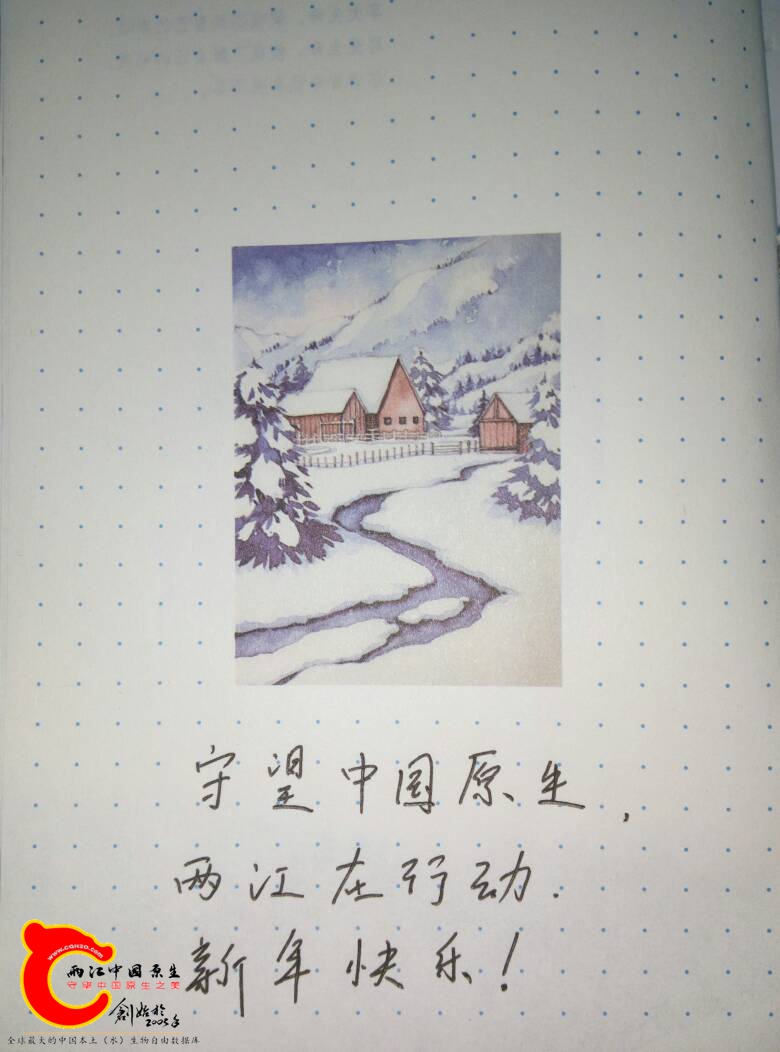 守望中国原生，
两江在行动.
新年快乐！
www.cqh2o.com
两江中国原生
守望中国原生之美
创始於
2005年
全球最大的中国本土（水）生物自由数据库